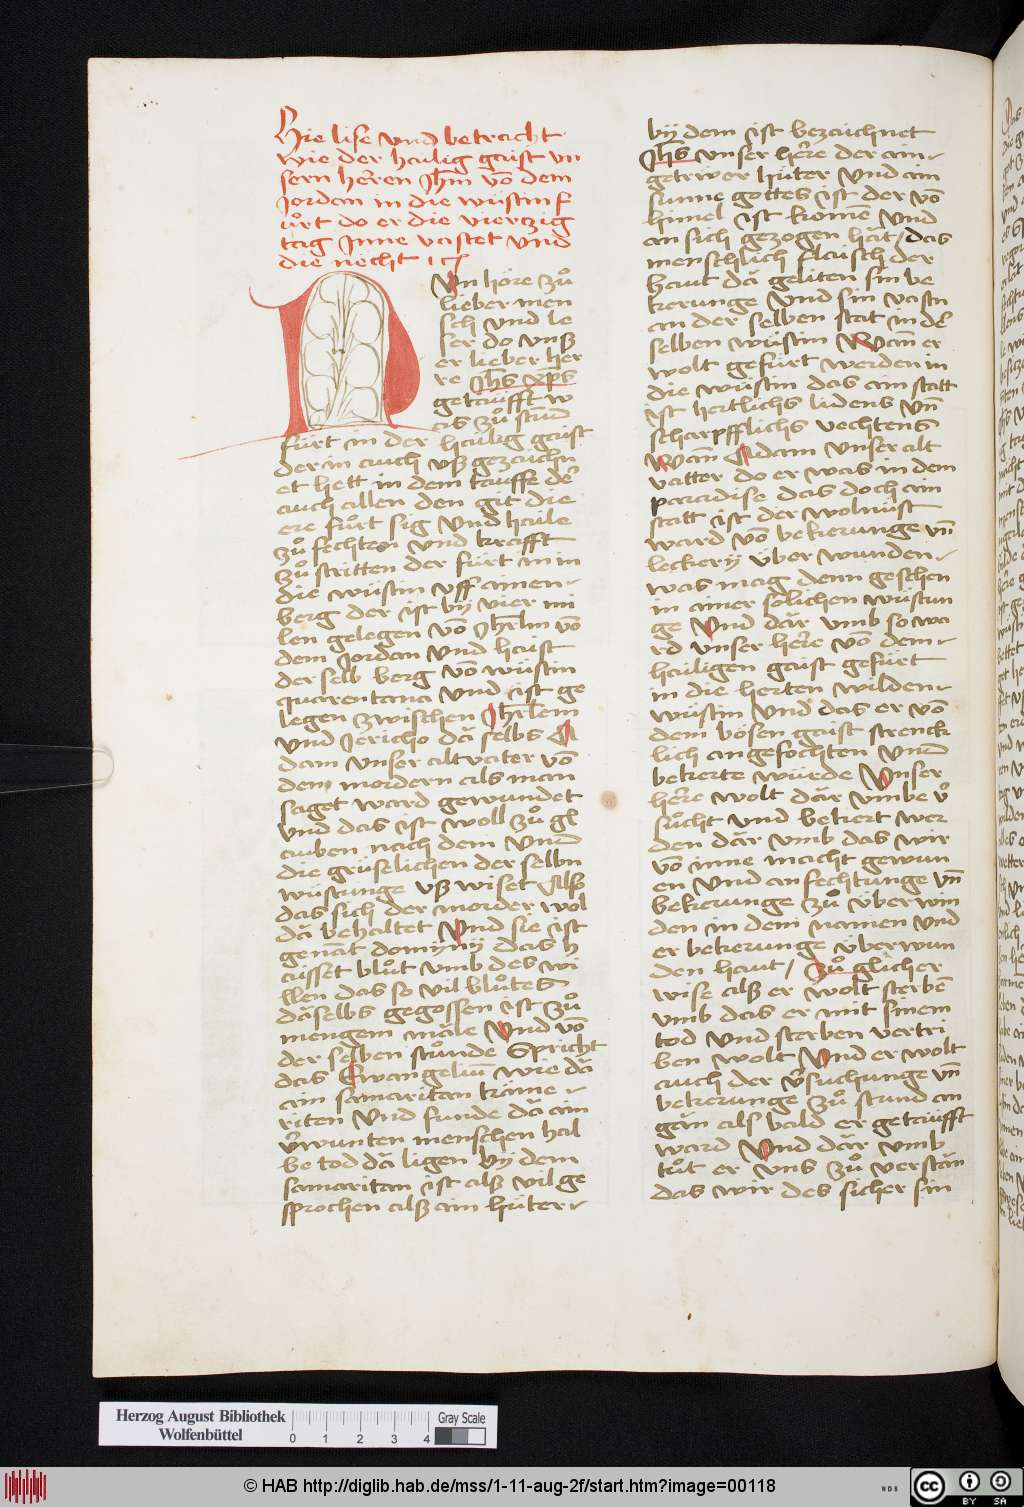 Hie lise vnd betracht
wie der hailig gaist vn
sern herren Jhm̄ vō dem
Jordan in die wüstin f
uͦrt do er die vierczig
tag Jnne vastet vnd
die necht
Nvn höre zuͦ
lieber men
sch vnd le
ser do vnß
er lieber her
re Jhs xps
getaufft w
as zuͦ stund
fürt in der hailig gaist
der in auch vß gezaichn
et hett in dem tauffe der
auch allen den git die
ere fürt sig vnd haile
zuͦ fechten vnd krafft
zuͦ stritten der fürt in in
die wüstin vff ainen
berg der ist by vier mi
len gelegen vō Jhrlm vō
dem Jordan vnd haist
der selb berg vō wüstin
quarentana vnd ist ge
legen zwischen Jhrlem
vnd Jericho dā selbs A
dam vnser altvater vō
den mordern als man
saget ward gewundet
vnd das ist woll zuͦ gl
auben nach dem vnd
die grüselichen der selbn
wüstunge vß wiset Alß
das sich der morder wol
dā behaltet vnd sie ist
genāt domynÿ das h
aisset bluͦt vmb des wi
llen das so vil bluͦtes
dāselbs gegossen ist zuͦ
mengem māle vnd vō
der selben stunde Spricht
das Ewangeliū wie dā
ain samaritan kāme
riten vnd funde dā ain
v̄wunten menschen hal
be tod dā ligen by dem
samaritan ist alß vil ge
sprochen alß ain hüter
bÿ dem ist bezaichnet
Jhs vnser here der ain
getrwer hüter vnd ain
sunne gottes ist der vō
himel ist komē vnd
an sich gezogen hāt / das
menschlich flaisch der
haut dā geliten sin be
kerunge vnd sin vastn
an der selben stat in der
selben wüstin Wann er
wolt gefürt werden in
die wüstin das ain statt
ist hertlichs lidens vn̄
scharpfflichs vechtens
Wann Adam vnser alt
vatter do er was in dem
paradise das doch ain
statt ist der wolnust
ward vō bekerunge vn̄
leckerÿ über wunden
was mag denn geschen
in ainer solichen wüstun
ge vnd dār vmb so wa
rd vnser here vō dem
hailigen gaist gefürt
in die herten wilden
wüstin vnd das er vō
dem bösen gaist strenck
lich angefochten vnd
bekerte würde Vnser
here wolt dār vmbe v̊
suͦcht vnd bekert wer
den dār vmb das wir
vō inne macht gewun
en vnd anfechtunge vn̄
bekerunge zuͦ über win
den in dem namen vnd
er bekerunge überwun
den haut / zuͦ glicher
wise alß er wolt sterbē
vmb das er mit sinem
tod vnd sterben vertri
ben wolt vnd er wolt
auch der v̄suchunge vn̄
bekerunge zuͦ stund an
gān als bald er getaufft
ward vnd dār vmb
tuͦt er vns zuͦ verstān
das wir des sicher sin
Herzog August Bibliothek
Wolfenbüttel
0 1 2 3 4
Gray Scale
© HAB http://diglib.hab.de/mss/1-11-aug-2f/start.htm?image=00118
WDB
cc BY SA